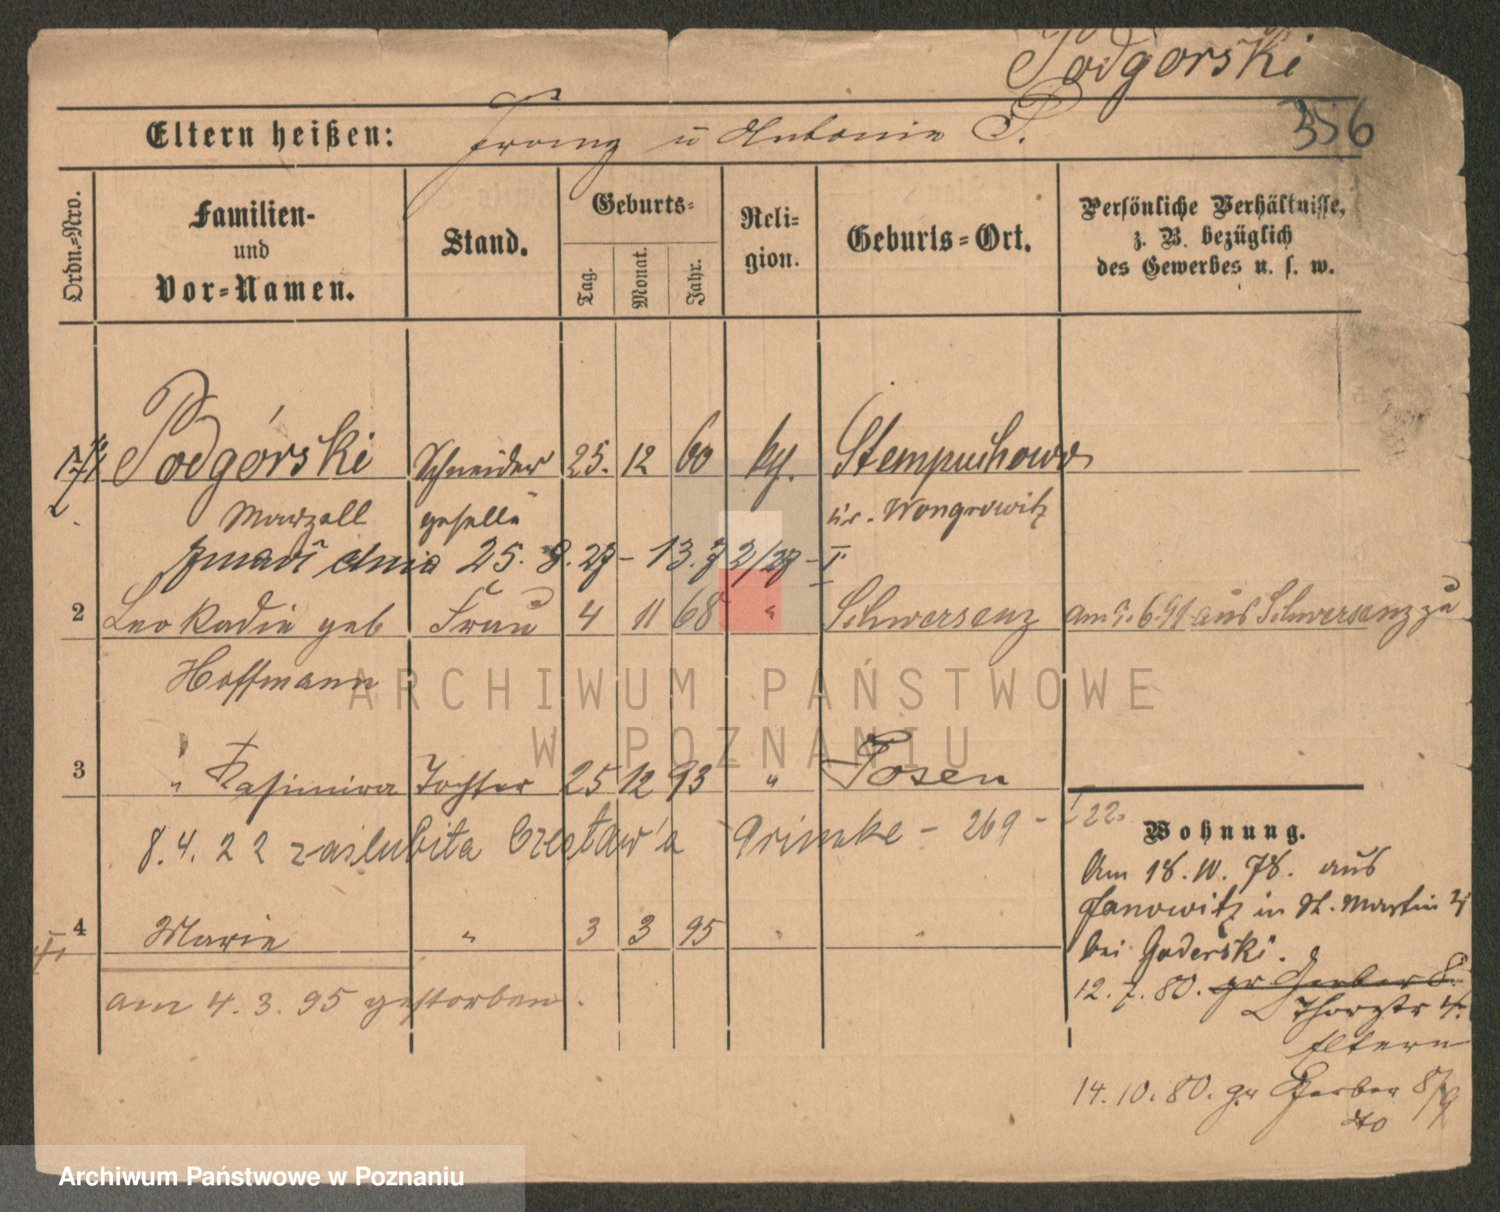 Podgórski
356
Eltern heißen: Franz u Antonie P.
Ordn.-Nro.
Familien- und Vor-Namen.
Stand.
Geburts-
Tag.
Monat.
Jahr.
Religion.
Geburts-Ort.
Persönliche Verhältnisse, z. B. bezüglich des Gewerbes u. s. w.
Podgórski Schneider 25. 12 60 Stempuchowo
Marzell geselle Wongrowitz
zmarł dnia 25. 8. 27 - 13.7 2/27 - I
2 Leokadie geb Frau 4 11 68 " Schwersenz am 9.6.91 aus Schwersenz zu
Hoffmann
3 " Kasimira Tochter 25 12 93 " Posen
8.4.22 zaślubiła Czesław'a Grimke - 269 - I 22.
4 Marie " 3 3 95 " "
am 4.3.95 gestorben.
Wohnung.
Am 18.10.78. aus
Janowitz in St. Martin
bei Goderski.
12.7.80. gr Gerber 8.
Thorstr
Eltern
14.10.80. gr Gerber 8/9
ARCHIWUM PAŃSTWOWE
W POZNANIU
Archiwum Państwowe w Poznaniu